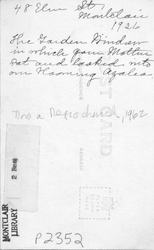 48 Elm St.
Montclair
1926
The Garden Window
in which your Mother
sat and looked into
our Flaming Azalea.
Now a Negro church, 1962
POST CARD
MONTCLAIR
LIBRARY
P2352